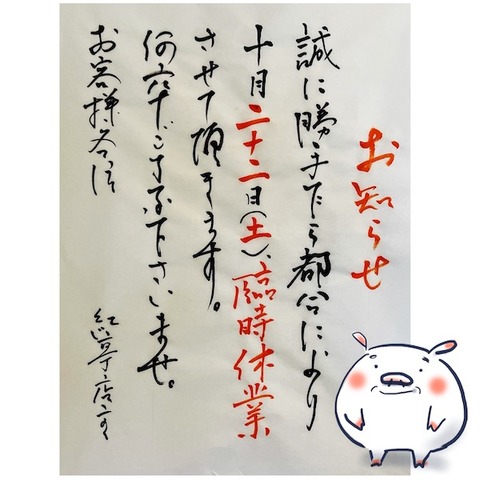 お知らせ
誠に勝手乍ら都合により
十月二十二日(土)、臨時休業
させて頂きます。
何卒ご了承下さいませ。
お客様各位
店主